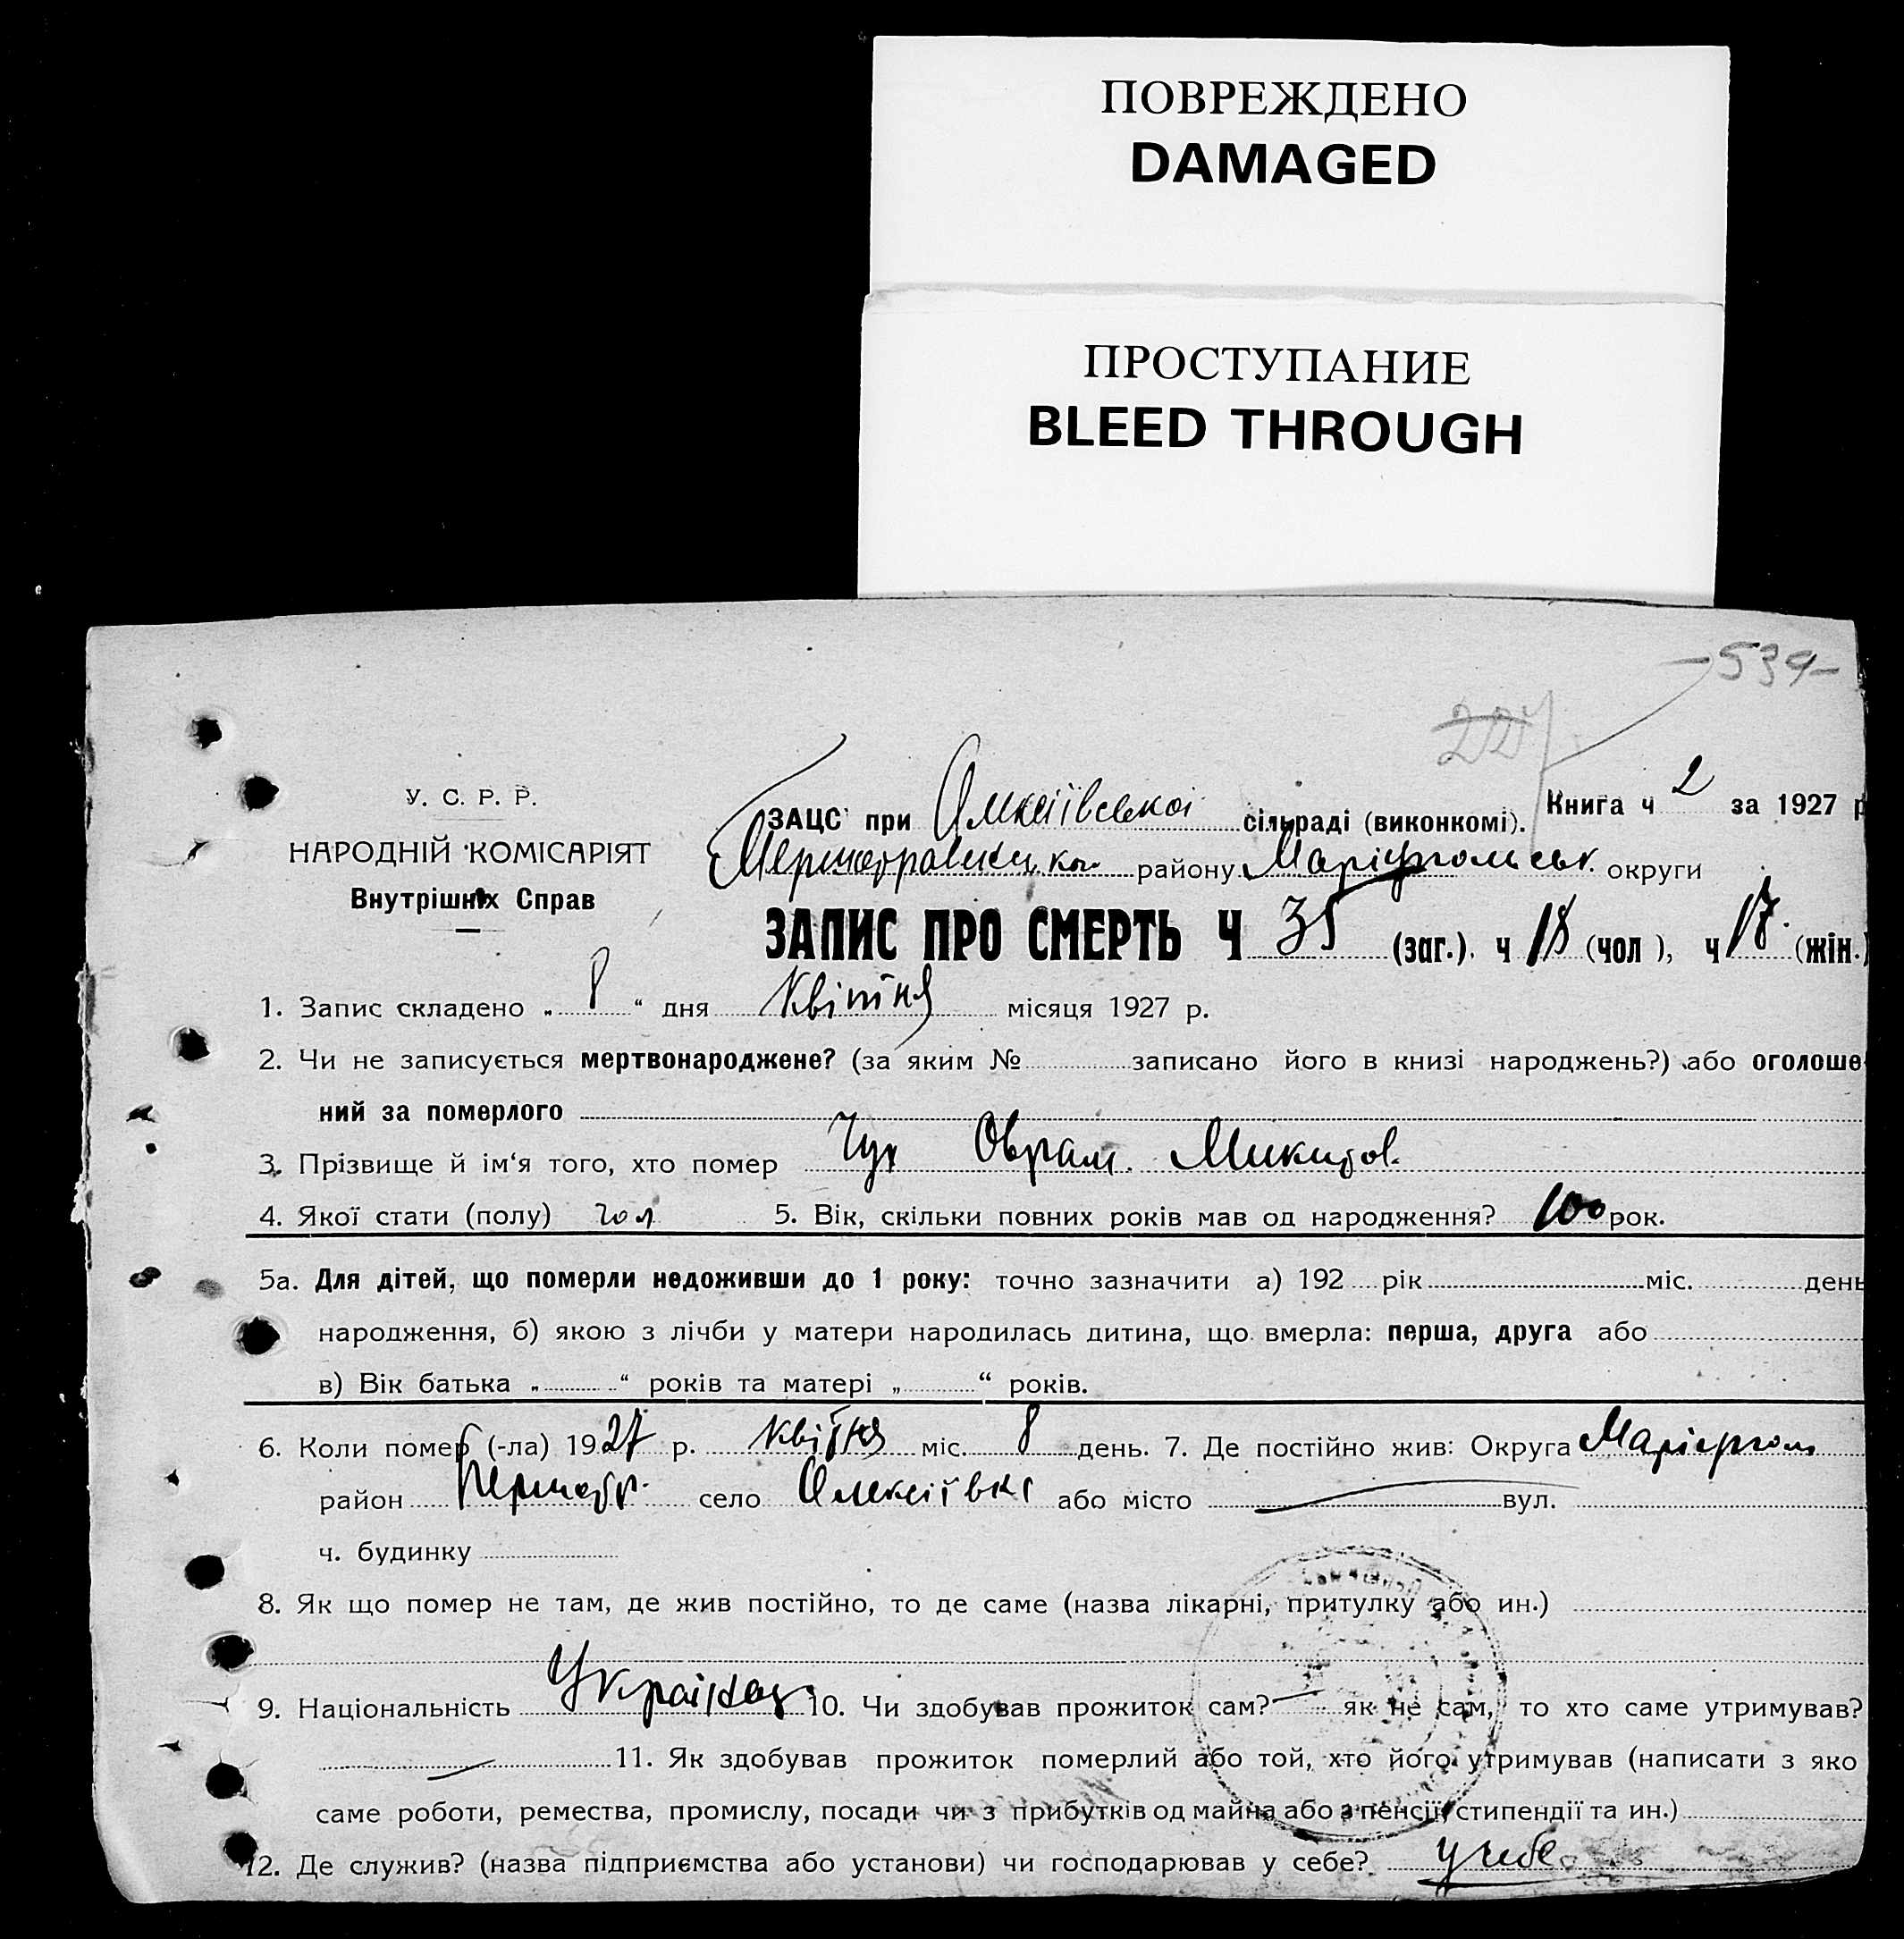 ПОВРЕЖДЕНО
DAMAGED
ПРОСТУПАНИЕ
BLEED THROUGH
539
227
У. С. Р. Р.
НАРОДНІЙ КОМІСАРІЯТ
Внутрішніх Справ
Книга ч 2 за 1927 р
ЗАЦС при Олексіївської сільраді (виконкомі).
району Маріупольськ. округи
ЗАПИС ПРО СМЕРТЬ Ч 35 (заг.). ч 18 (чол), ч 17. (жін.)
1. Запис складено „ 8 “ дня Квітня місяця 1927 р.
2. Чи не записується мертвонароджене? (за яким № записано його в книзі народжень?) або оголоше-
ний за померлого
3. Прізвище й ім‘я того, хто помер Чух Оврам Микитов.
4. Якої стати (полу) чол 5. Вік, скільки повних років мав од народження? 100 рок.
5а. Для дітей, що померли недоживши до 1 року: точно зазначити а) 192 рік міс. день
народження, б) якою з лічби у матери народилась дитина, що вмерла: перша, друга або
в) Вік батька „ “ років та матері „ “ років.
6. Коли помер (-ла) 1927 р. квітня міс. 8 день. 7. Де постійно жив: Округа Маріуполь
район Першотр. село Олексіївка або місто вул.
ч. будинку
8. Як що помер не там, де жив постійно, то де саме (назва лікарні, притулку або ин.)
9. Національність Українец 10. Чи здобував прожиток сам? — як не сам, то хто саме утримував?
— 11. Як здобував прожиток померлий або той, хто його утримував (написати з яко
саме роботи, ремества, промислу, посади чи з прибутків од майна або з пенсії, стипендії та ин.)
12. Де служив? (назва підприємства або установи) чи господарював у себе? у себе